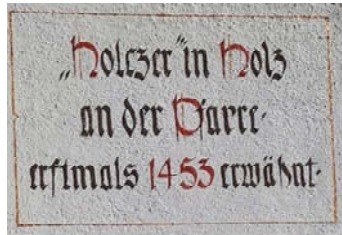 „Holczer" in Holz
an der Pfarre·
erstmals 1453 erwähnt·